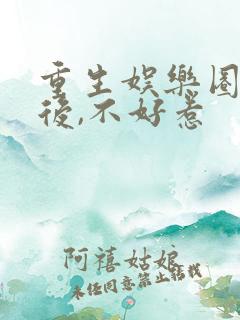 重生娛樂圈
後,不好惹
阿禧姑娘
未經同意禁止轉載